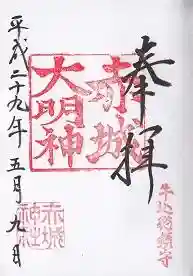 奉拝
赤城
大明神
牛込総鎮守
赤城
神社
平成二十九年五月九日